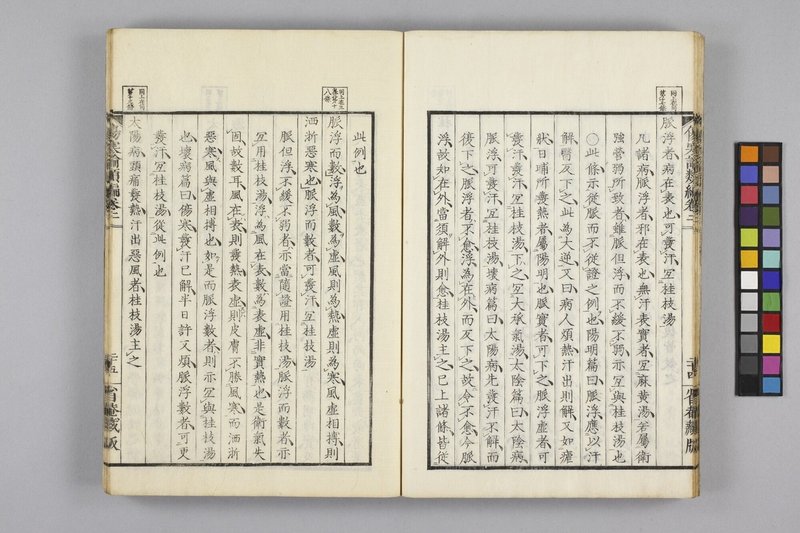 脈浮者病在表也可發汗宜桂枝湯
凡諸病脈浮者邪在表也無汗表實者宜麻黃湯若屬衛
強營弱所致者雖脈但浮而不緩不弱亦宜與桂枝湯也
○此條示從脈而不從證之例也陽明篇曰脈浮應以汗
解醫反下之此為大逆又曰病人煩熱汗出則解又如瘧
狀日晡所發熱者屬陽明也脈實者可下之脈浮虛者可
發汗發汗宜桂枝湯下之宜大承氣湯太陰篇曰太陰病
脈浮可發汗宜桂枝湯壞病篇曰太陽病先發汗不解而
復下之脈浮者不愈浮為在外而反下之故令不愈今脈
浮故知在外當須解外則愈桂枝湯主之已上諸條皆從
此例也
脈浮而數浮為風數為虛風則為熱虛則為寒風虛相摶則
洒淅惡寒也脈浮而數者可發汗宜桂枝湯
脈但浮不緩不弱者亦當隨證用桂枝湯脈浮而數者亦
宜用桂枝湯浮為風在表數為表虛非實熱也是衛氣失
固故數耳風在表則發熱表虛則皮膚不勝風寒而洒淅
惡寒風與虛相摶也如是而脈浮數者則亦宜與桂枝湯
也壞病篇曰傷寒發汗已解半日許又煩脈浮數者可更
發汗宜桂枝湯從此例也
太陽病頭痛發熱汗出惡風者桂枝湯主之
傷寒論類編卷二
二十五